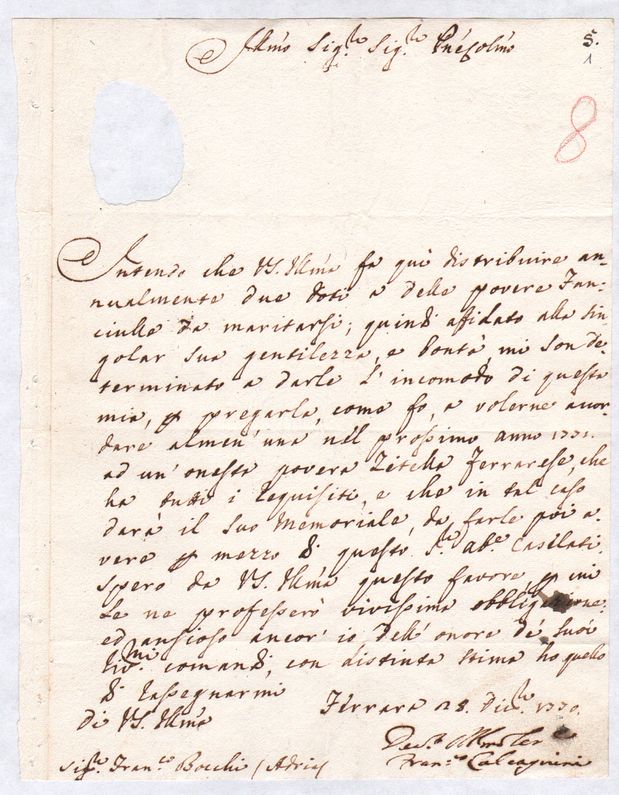 Illmo Sigr. Sigr.
5.
1
8
Intendo che VS. Illma fa quì distribuire an-
nualmente due doti a delle povere Fan-
ciulle da maritarsi; quindi affidato alla sin-
golar sua gentilezza, e bontà, mi son de-
terminato a darle l'incomodo di questa
mia, p pregarla, come fo, a volerne accor-
dare almen' una nel prossimo anno 1731.
ad un' onesta povera Zitella Ferrarese, che
ha tutti i requisiti, e che in tal caso
darà il suo Memoriale, da farle poi a-
vere p mezzo di questo Sr. Abe. Casilati.
Spero da VS. Illma questo favore, p cui
Le ne professerò vivissima obbligazione,
ed anzioso ancor' io dell' onore de' suoi
comandi, con distinta stima ho quello
di rassegnarmi
Di VS. Illma
Ferrara 28. Dice. 1730.
Sigr. Franco Bocchi (Adria)
Franco Calcagnini